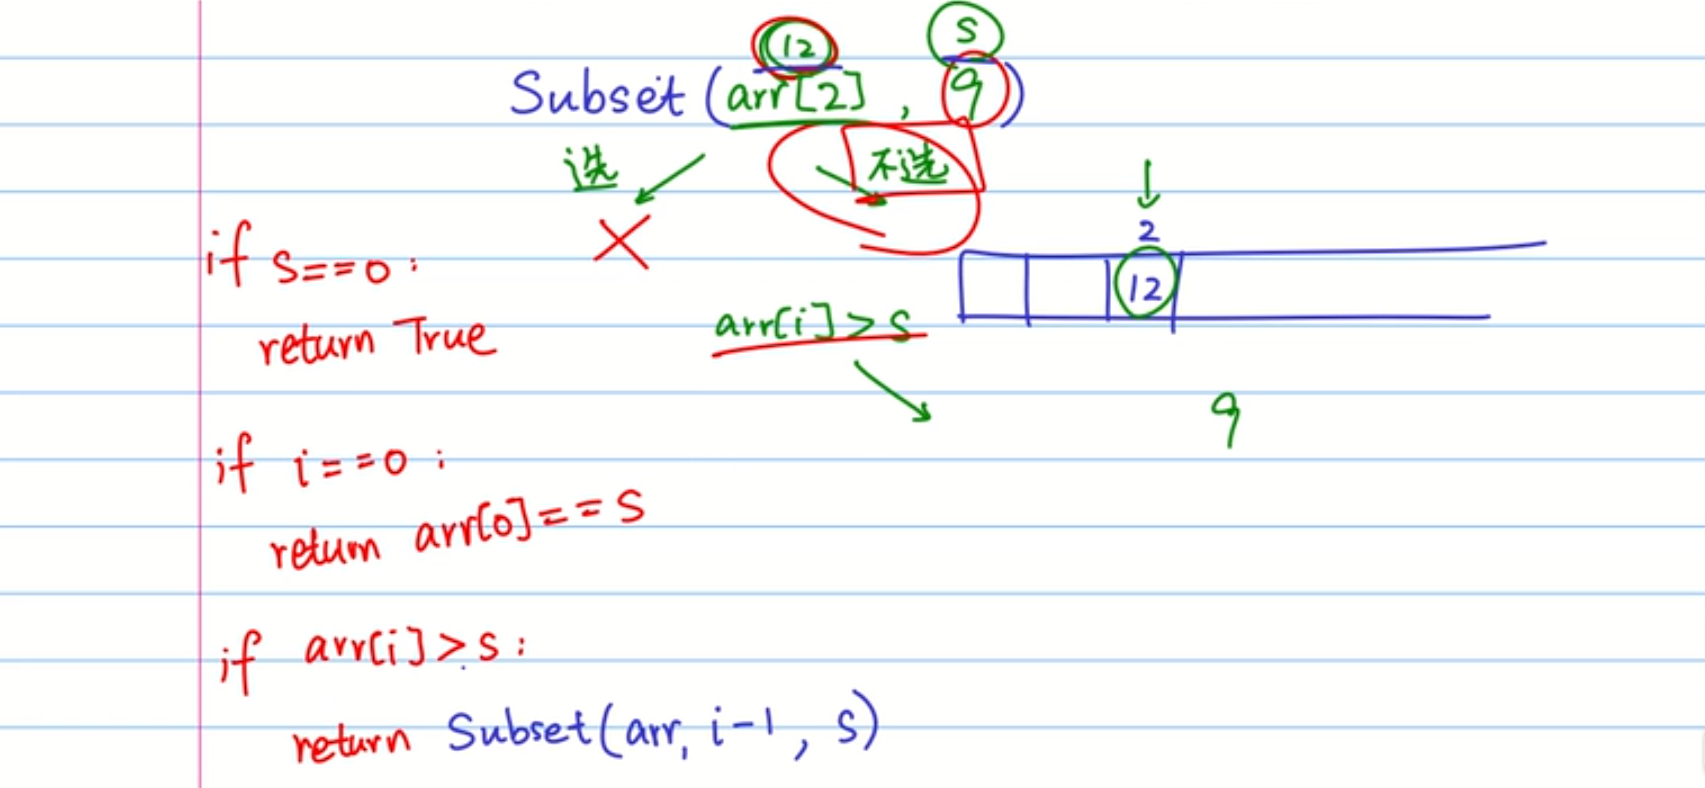 12 S
Subset (arr[2] , 9)
选 不选
2
if S==0 :
12
arr[i] > S
return True
9
if i==0 :
return arr[0]==S
if arr[i]>S :
return Subset(arr, i-1, S)